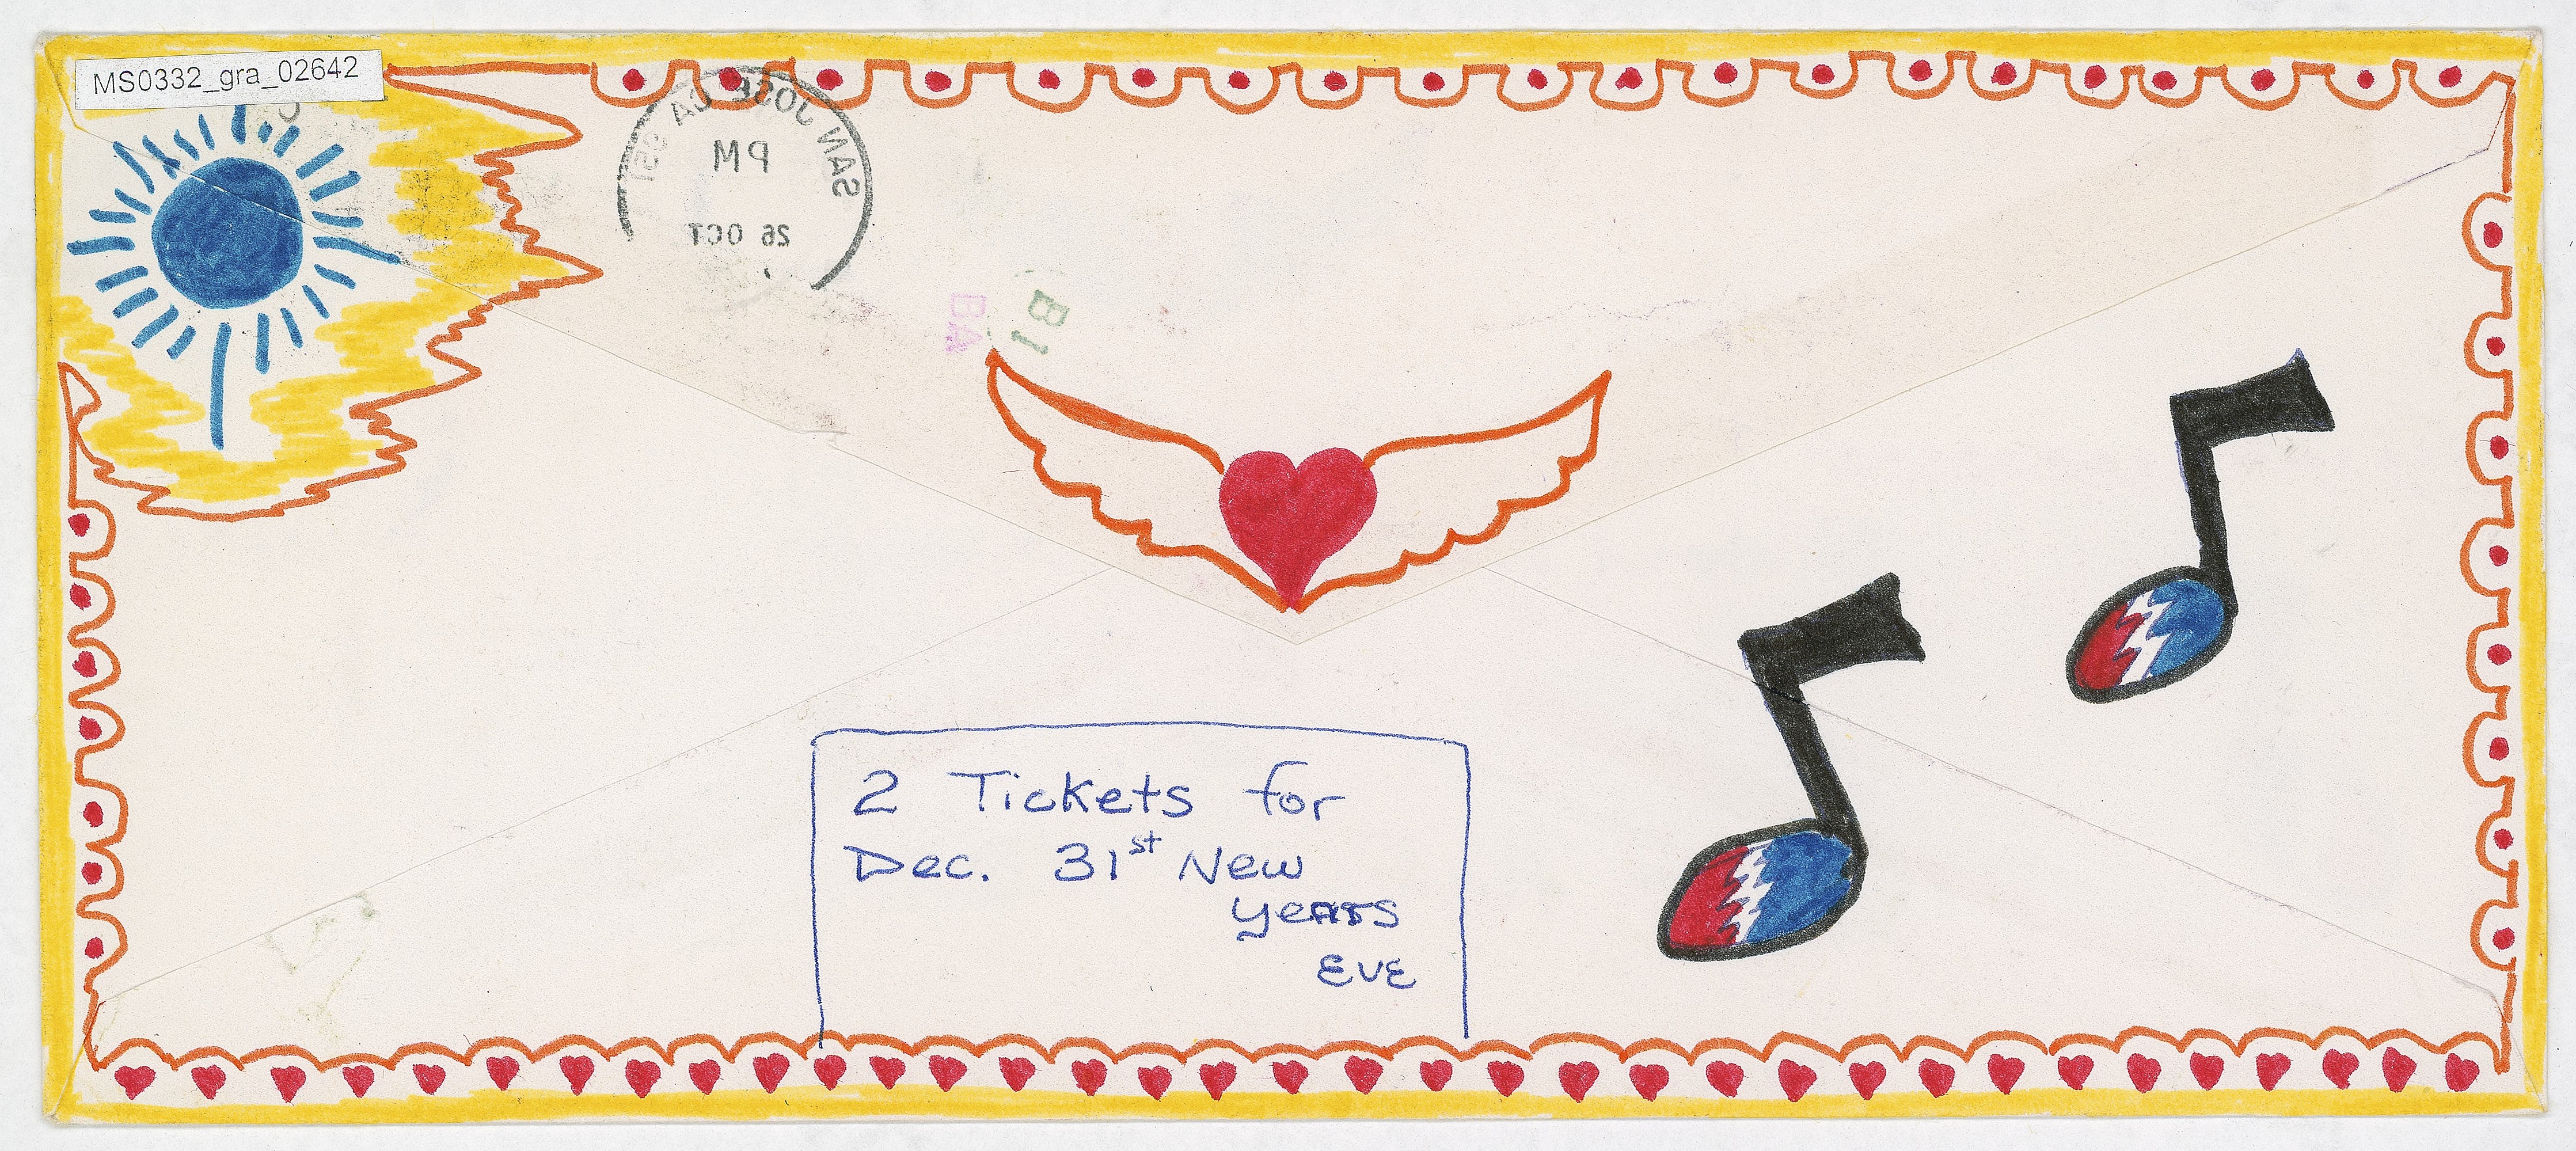 MS0332_gra_02642
SAN JOSE CA 951
PM
26 OCT
B1
BA
2 Tickets for
Dec. 31st New
years
Eve